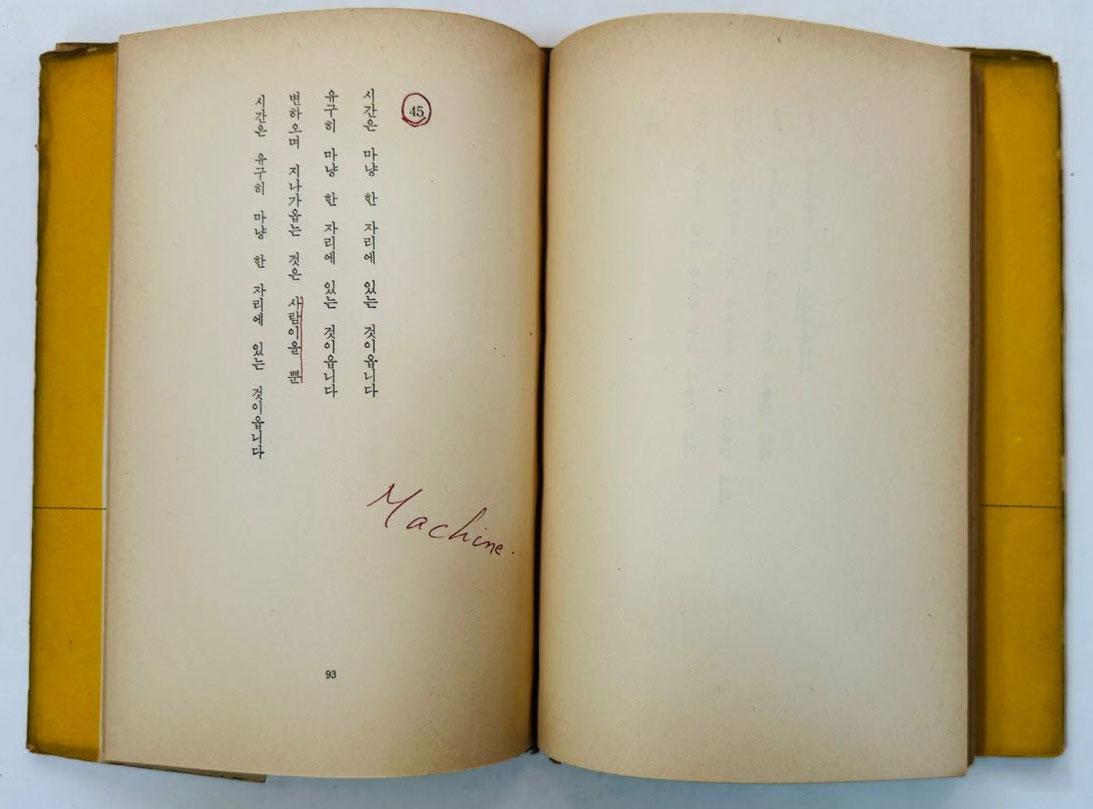 45
시간은 마냥 한 자리에 있는 것이옵니다
유구히 마냥 한 자리에 있는 것이옵니다
변하오며 지나가옵는 것은 사람이올 뿐
시간은 유구히 마냥 한 자리에 있는 것이옵니다
Machine.
93